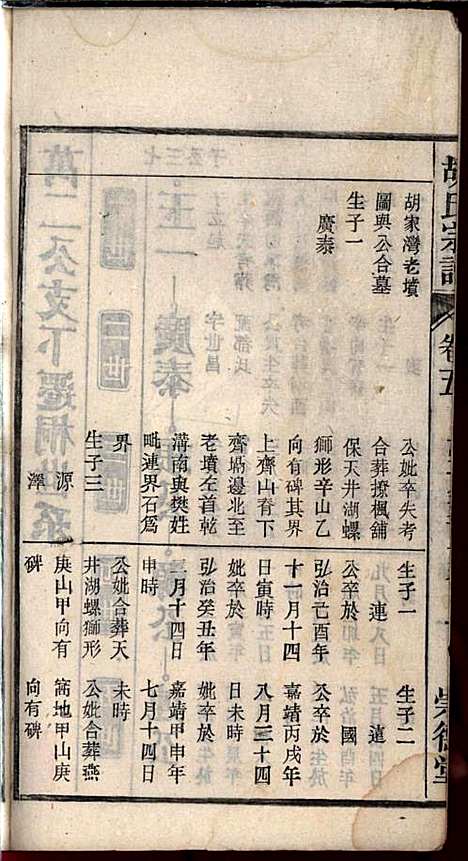 胡氏宗譜
卷五
崇德堂
胡家灣老墳
圖與公合墓
生子一
廣泰
公妣卒失考
合葬撩楓舖
保天井湖螺
獅形辛山乙
向有碑其界
上齊山脊下
齊堝邊北至
老墳左首乾
溝南與樊姓
毗連界石為
界
生子三
源
澤
生子一
連
公卒於
弘治己酉年
十一月十四
日寅時
妣卒於
弘治癸丑年
三月十四日
申時
公妣合葬天
井湖螺獅形
庚山甲向有
碑
生子二
國
公卒於
嘉靖丙戌年
八月二十四
日未時
妣卒於
嘉靖甲申年
七月十四日
未時
公妣合葬燕
窩地甲山庚
向有碑